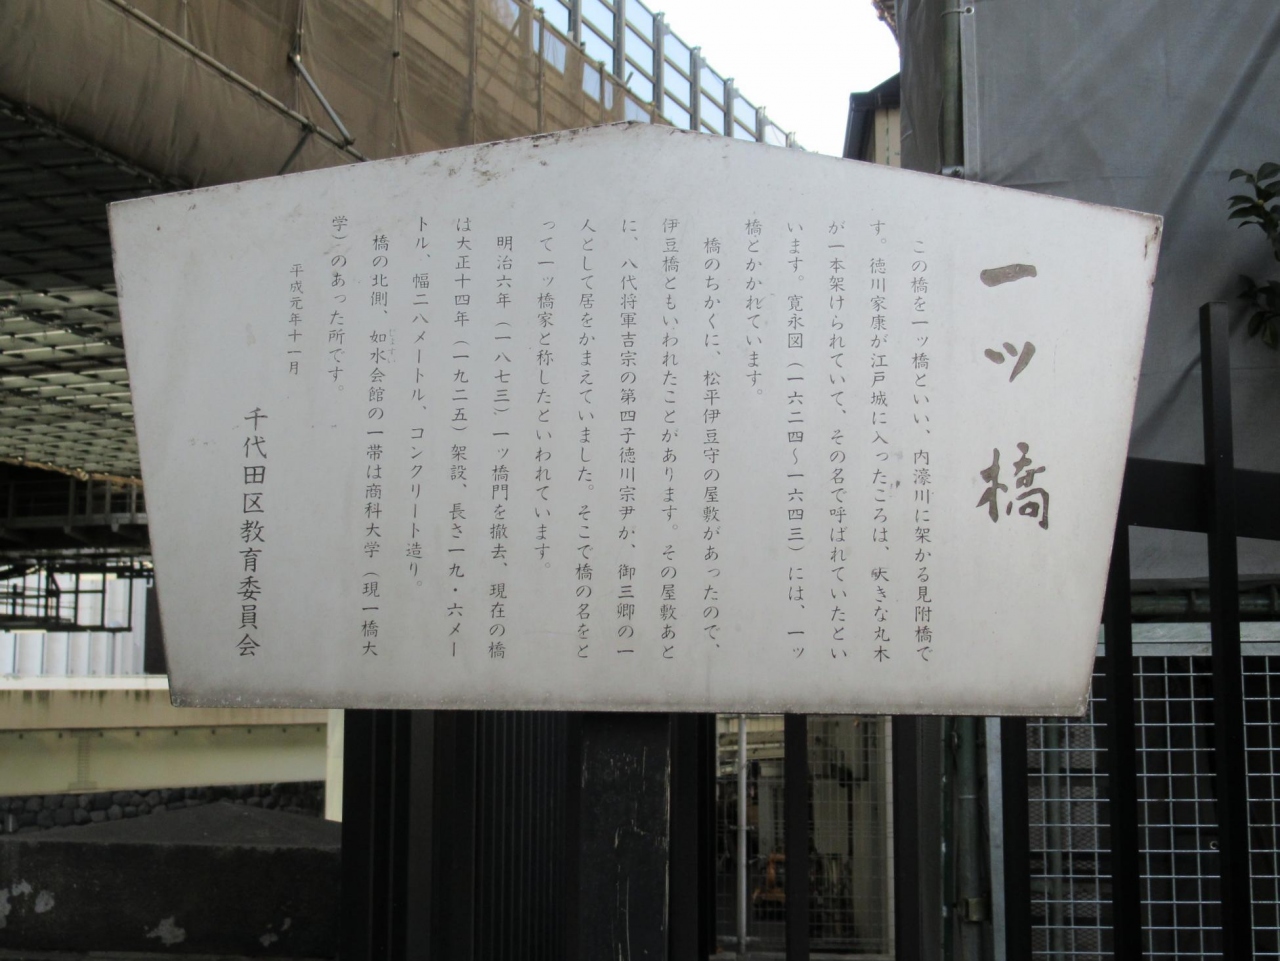 一ッ橋
この橋を一ッ橋といい、内濠川に架かる見附橋で
す。徳川家康が江戸城に入ったころは、大きな丸木
が一本架けられていて、その名で呼ばれていたとい
います。寛永図（一六二四〜一六四三）には、一ッ
橋とかかれています。
橋のちかくに、松平伊豆守の屋敷があったので、
伊豆橋ともいわれたことがあります。その屋敷あと
に、八代将軍吉宗の第四子徳川宗尹が、御三卿の一
人として居をかまえていました。そこで橋の名をと
って一ッ橋家と称したといわれています。
明治六年（一八七三）一ッ橋門を撤去、現在の橋
は大正十四年（一九二五）架設、長さ一九・六メー
トル、幅二八メートル、コンクリート造り。
橋の北側、如水会館の一帯は商科大学（現一橋大
学）のあった所です。
平成元年十一月
千代田区教育委員会